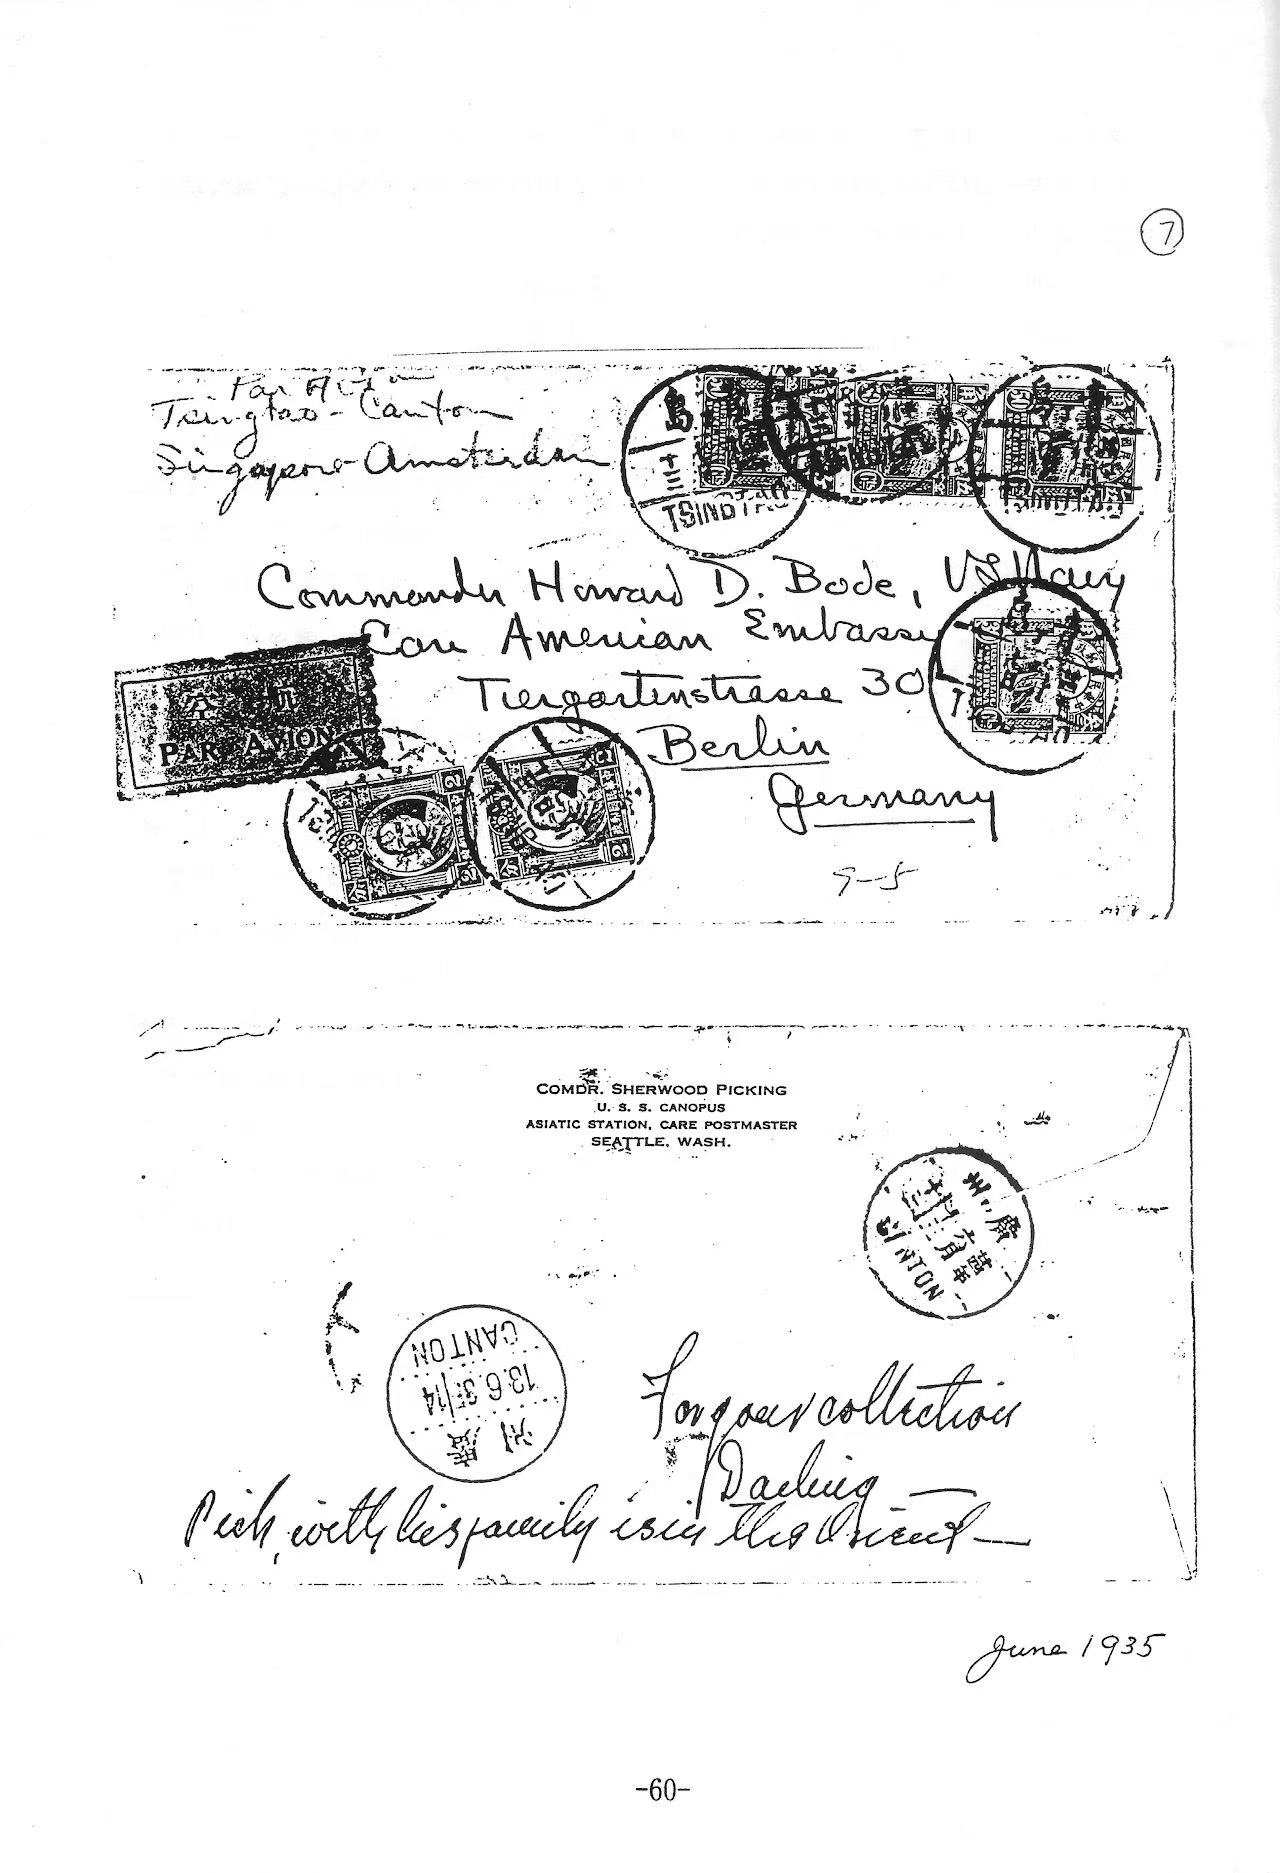 7
Par Avion
Tsingtao - Canton
Singapore - Amsterdam
TSINGTAO
Commander Howard D. Bode, US Navy
Care American Embassy
Tiergartenstrasse 30
Berlin
Germany
PAR AVION
9-5
COMDR. SHERWOOD PICKING
U. S. S. CANOPUS
ASIATIC STATION, CARE POSTMASTER
SEATTLE, WASH.
廣州
CANTON
CANTON
13.6.35/14
廣州
For your collection
Darling —
Pick, with his family is in the Orient —
June 1935
-60-